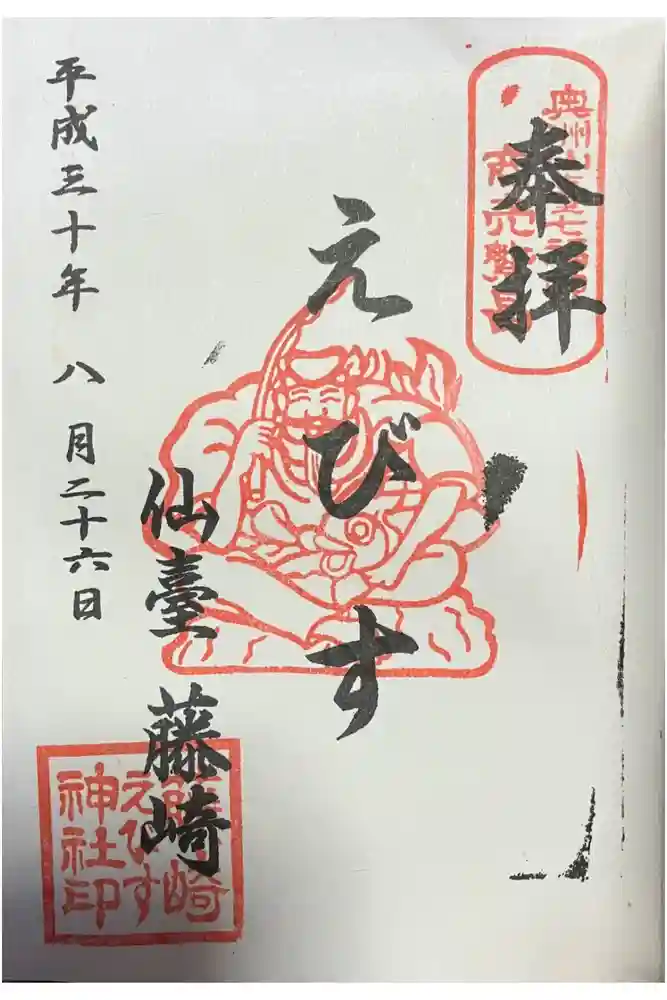 奉拝
奥州
商売繁昌
えびす
仙臺 藤崎
藤崎
えびす
神社印
平成三十年 八 月二十六日